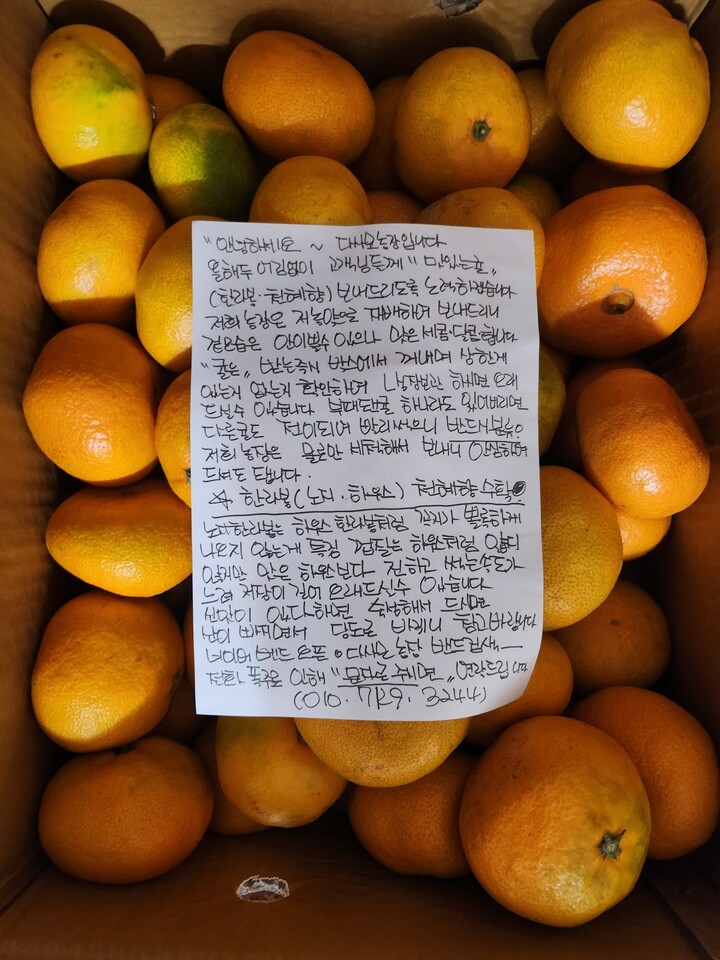 "안녕하세요 ~ 다시온농장입니다
올해두 어김없이 고객님들께 "맛있는귤"
(한라봉·천혜향) 보내드리도록 노력하겠습니다
저희 농장은 저농약으로 재배하여 보내드리니
겉모습은 안이쁠수 있으나 맛은 새콤·달콤합니다
"귤은" 받는즉시 박스에서 꺼내며 상한게
있는지 없는지 확인하며 냉장보관 하시면 오래
드실수 있습니다 부패된귤 하나라도 있어버리면
다른귤도 전이되며 빨리썩으니 반드시분류
저희 농장은 물로만 세척해서 보내니 안심하며
드셔도 됩니다.
☆ 한라봉(노지·하우스) 천혜향 수확
노지한라봉는 하우스 한라봉처럼 꼭지가 뽈록하게
나오지 않는게 특징 껍질는 하원처럼 얇디
않지만 맛은 하원보다 진하고 썩는속도가
느려 저장이 길어 오래드실수 있습니다
신맛이 있다하면 숙성해서 드시면
산이 빠지면서 당도로 바뀌니 참고바랍니다
네이버 밴드 오픈 다시온 농장 밴드검색
전화 폭주로 인해 "문자로 주시면" 연락드립니다
(010. 7129. 3244)